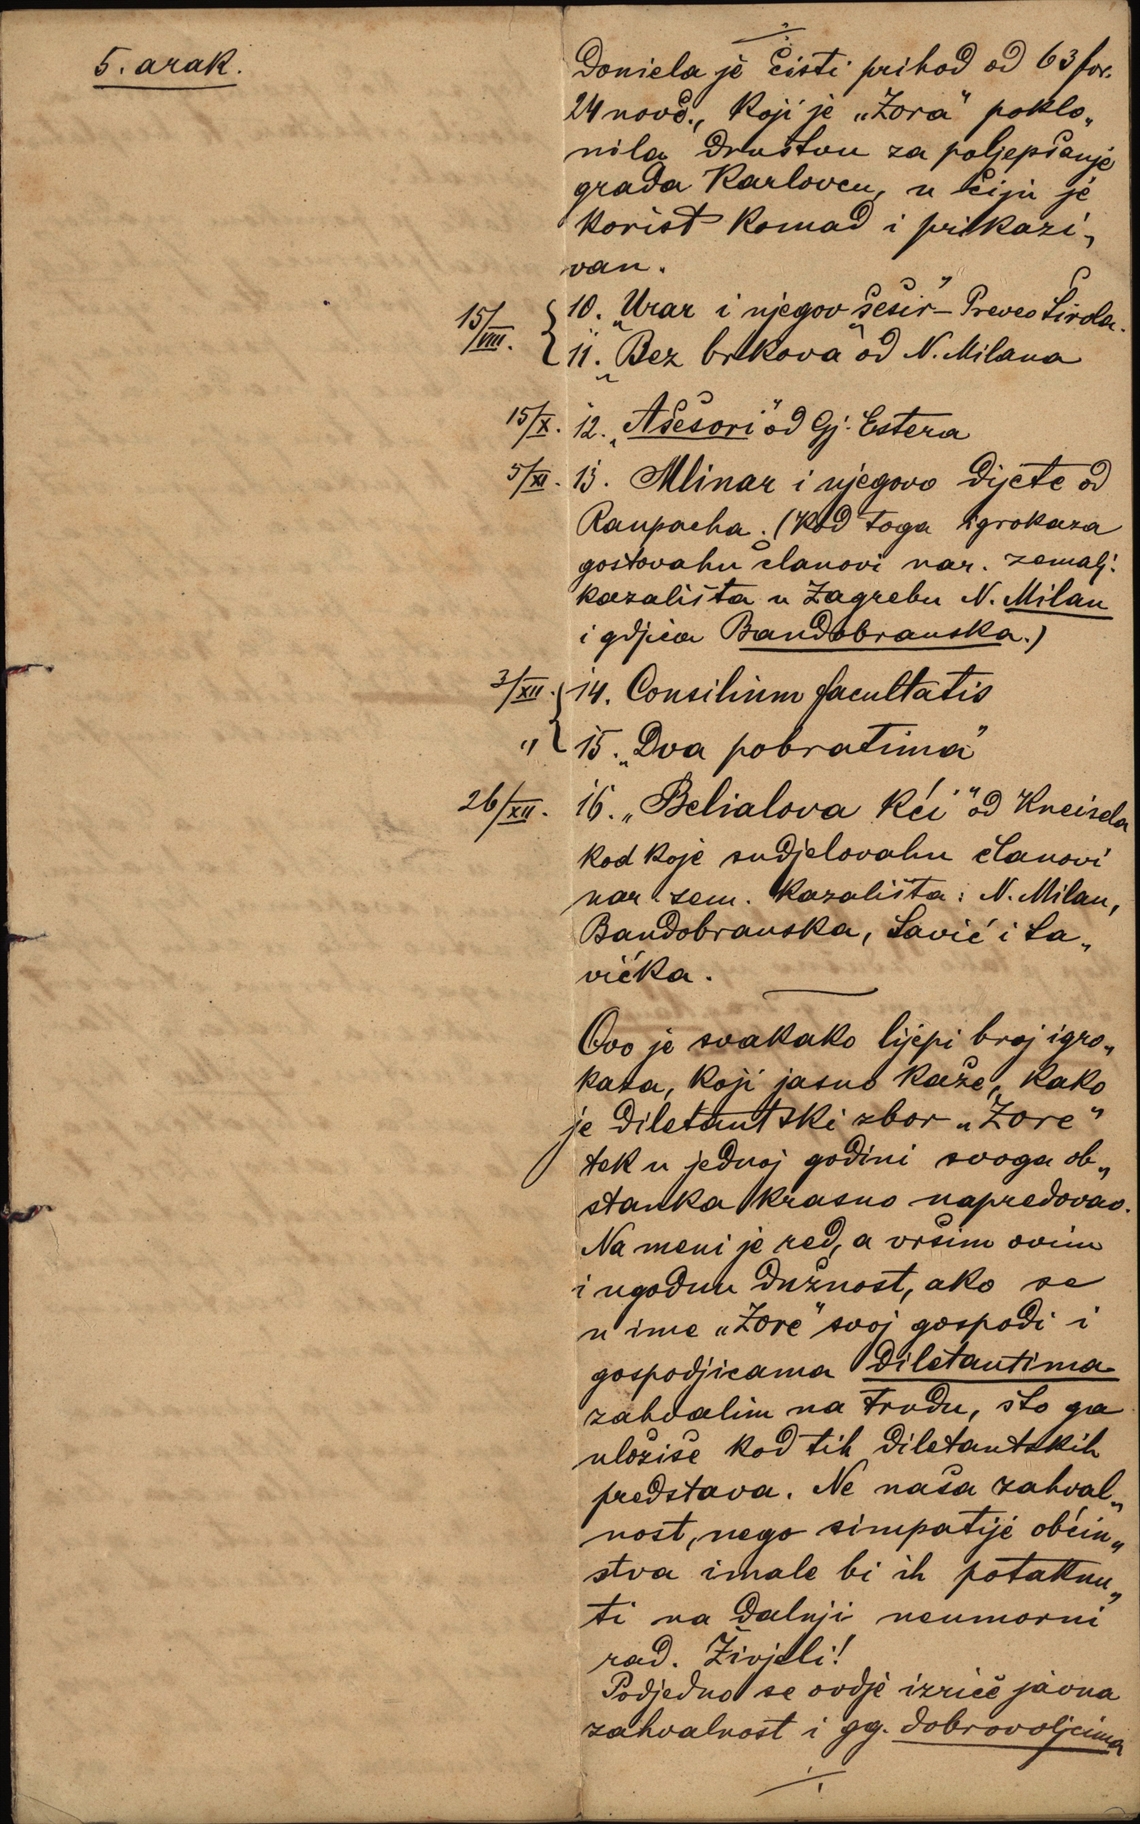 5. arak.
Doniela je čisti prihod od 63 for.
24 novč., koji je „Zora" poklo„
nila Društvu za poljepšanje
grada Karlovcu, u čiju je
korist komad i prikazi„
van.
15/VIII. { 10. „Urar i njegov šešir" – Preveo Širola.
11. „Bez brkova" od N. Milana
15/X. 12. „Ašešori" od Gj. Estera
5/XI. 13. Mlinar i njegovo dijete od
Raupacha. (Kod toga igrokaza
gostovahu članovi nar. zemalj.
kazališta u Zagrebu N. Milan
i gdjica Bandobranska.)
3/XII. { 14. Consilium facultatis
„ 15. „Dva pobratima"
26/XII. 16. „Belialova kći" od Kneisela
kod koje sudjelovahu članovi
nar. zem. kazališta: N. Milan,
Bandobranska, Savić i Sa„
vićka.
Ovo je svakako lijepi broj igro„
kaza, koji jasno kaže, kako
je diletantski zbor „Zore"
tek u jednoj godini svoga ob„
stanka krasno napredovao.
Na meni je red, a vršim ovim
i ugodnu dužnost, ako se
u ime „Zore" svoj gospodi i
gospodjicama diletantima
zahvalim na trudu, što ga
uložiše kod tih diletantskih
predstava. Ne naša zahval„
nost, nego simpatije občin„
stva imale bi ih potaknu„
ti na dalnji neumorni
rad. Živjeli!
Podjedno se ovdje izriče javna
zahvalnost i gg. dobrovoljcima